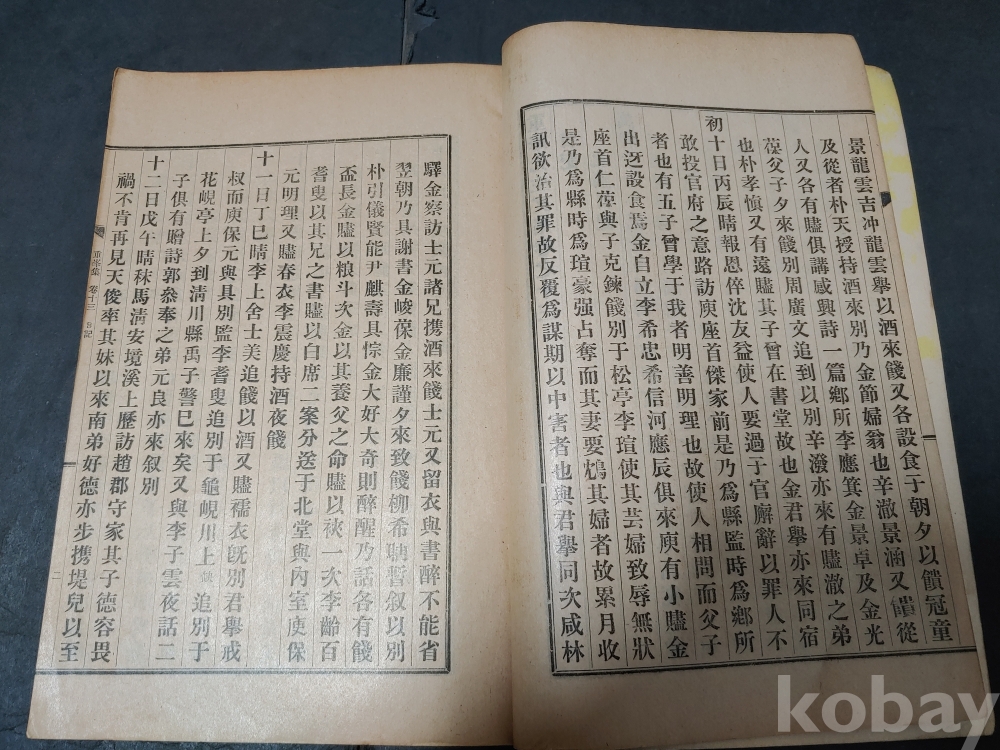 景龍雲吉冲龍雲舉以酒來餞又各設食于朝夕以饋冠童
及從者朴天授持酒來別乃金節婦翁也辛澈景涵又饋從
人又各有贐俱講感興詩一篇鄕所李應箕金景卓及金光
葆父子夕來餞別周廣文追到以別辛潑亦來有贐澈之弟
也朴孝愼又有遠贐其子曾在書堂故也金君舉亦來同宿
初十日丙辰晴報恩倅沈友益使人要過于官廨辭以罪人不
敢投官府之意路訪庾座首傑家前是乃爲縣監時爲鄕所
者也有五子曾學于我者明善明理也故使人相問而父子
出迓設食焉金自立李希忠希信河應辰俱來庾有小贐金
座首仁葆與子克鍊餞別于松亭李瑄使其芸婦致辱無狀
是乃爲縣時爲瑄豪强占奪而其妻要鴆其婦者故累月收
訊欲治其罪故反覆爲謀期以中害者也與君舉同次咸林
驛金察訪士元諸兄携酒來餞士元又留衣與書醉不能省
翌朝乃具謝書金峻葆金廉謹夕來致餞柳希聃暫叙以別
朴引儀賢能尹麒壽具悰金大好大奇則醉醒乃話各有餞
盃長金贐以粮斗次金以其養父之命贐以裌一次李齡百
耆叟以其兄之書贐以白席二案分送于北堂與內室庾保
元明理又贐春衣李震慶持酒夜餞
十一日丁巳晴李上舍士美追餞以酒又贐襦衣旣別君舉戒
叔而庾保元與具別監李耆叟追別于龜峴川上 追別于
花峴亭上夕到淸川縣禹子警巳來矣又與李子雲夜話二
子俱有贈詩郭叅奉之弟元良亦來叙別
十二日戊午晴秣馬淸安境溪上歷訪趙郡守家其子德容畏
禍不肯再見天俊率其妹以來南弟好德亦步携堤兒以至
集 卷十三 日記
二
kobay